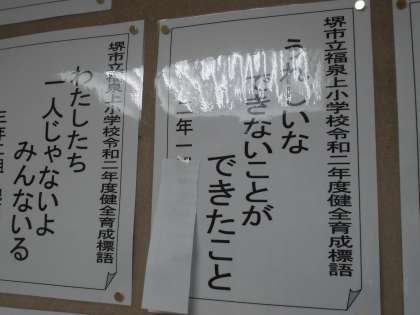 堺市立福泉上小学校令和二年度健全育成標語
うれしいな
できないことが
できたこと
二年一
堺市立福泉上小学校令和二年度健全育成標語
わたしたち
一人じゃないよ
みんないる
三年二組